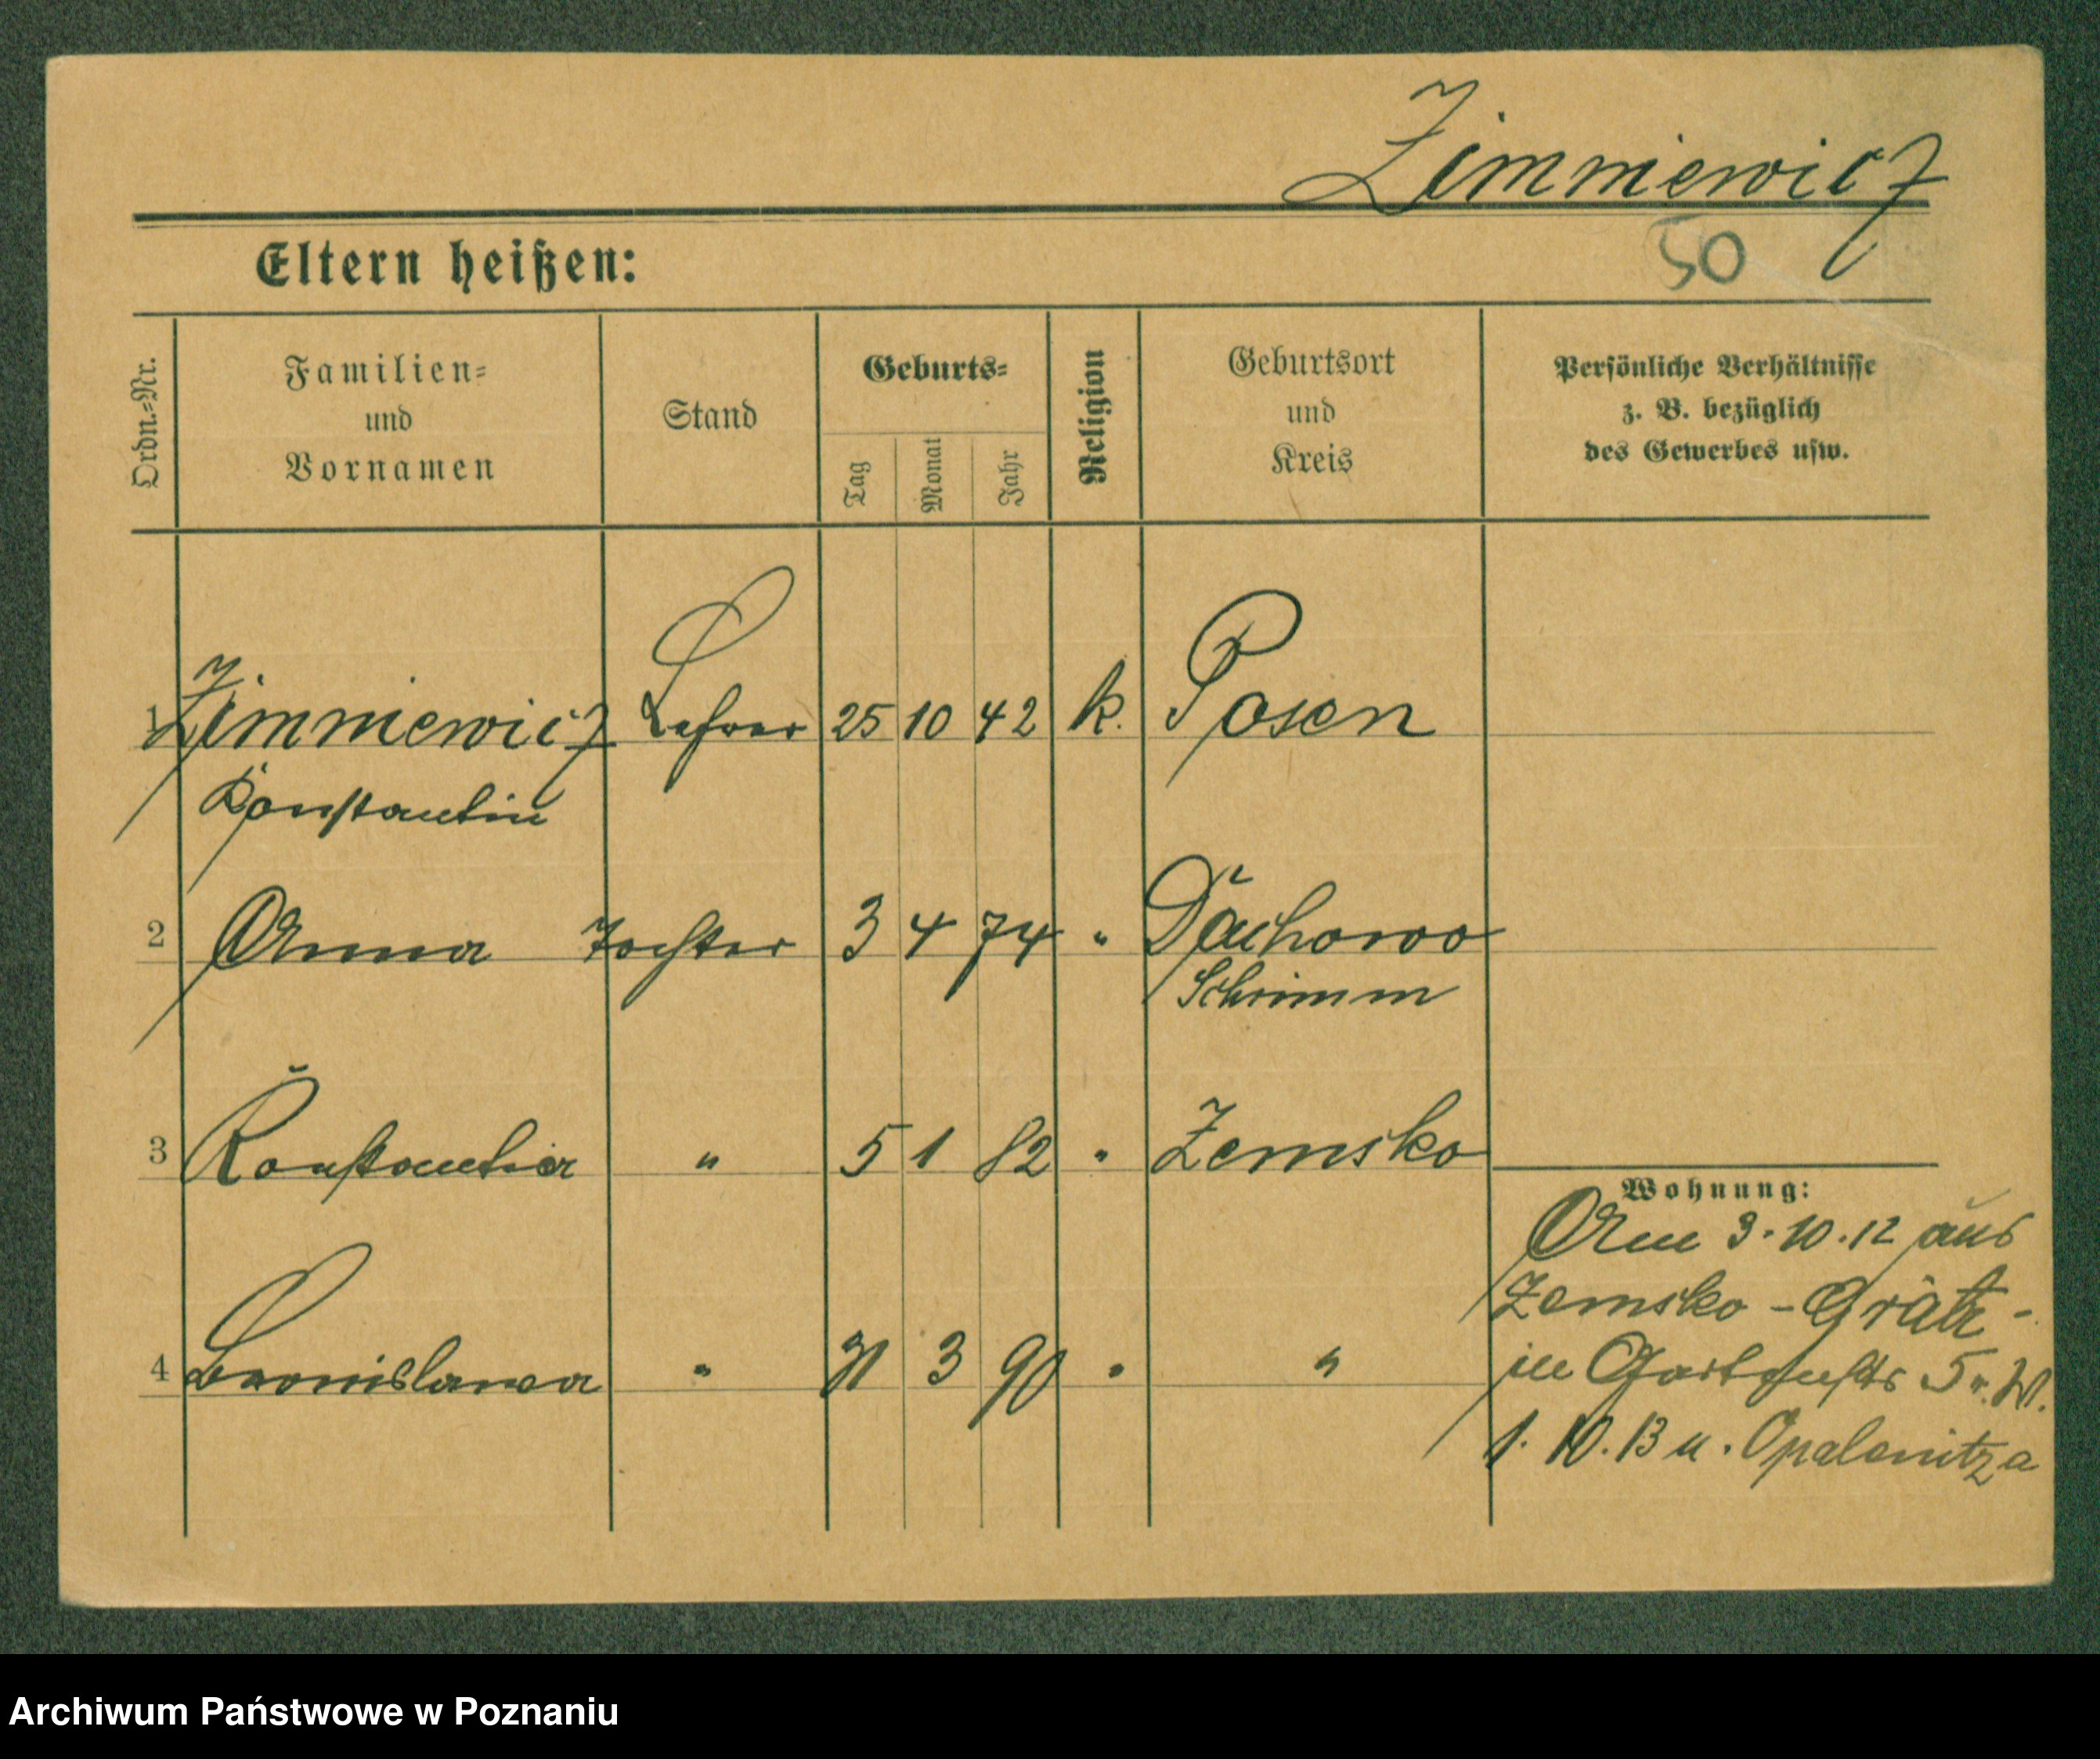 Zimniewicz
50
Eltern heißen:
Ordn.-Nr.
Familien-
und
Vornamen
Stand
Geburts-
Tag
Monat
Jahr
Religion
Geburtsort
und
Kreis
Persönliche Verhältnisse
z. B. bezüglich
des Gewerbes usw.
1 Zimniewicz Lehrer 25 10 42 k. Posen
Konstantin
2 Anna Tochter 3 4 74 " Dachowo
Schrimm
3 Konstantia " 5 1 82 " Zemsko
4 Bronislawa " 31 3 90 " "
Wohnung:
Am 3.10.12 aus
Zemsko - Grätz -
in 5
1.10.13 n. Opalenitza
Archiwum Państwowe w Poznaniu